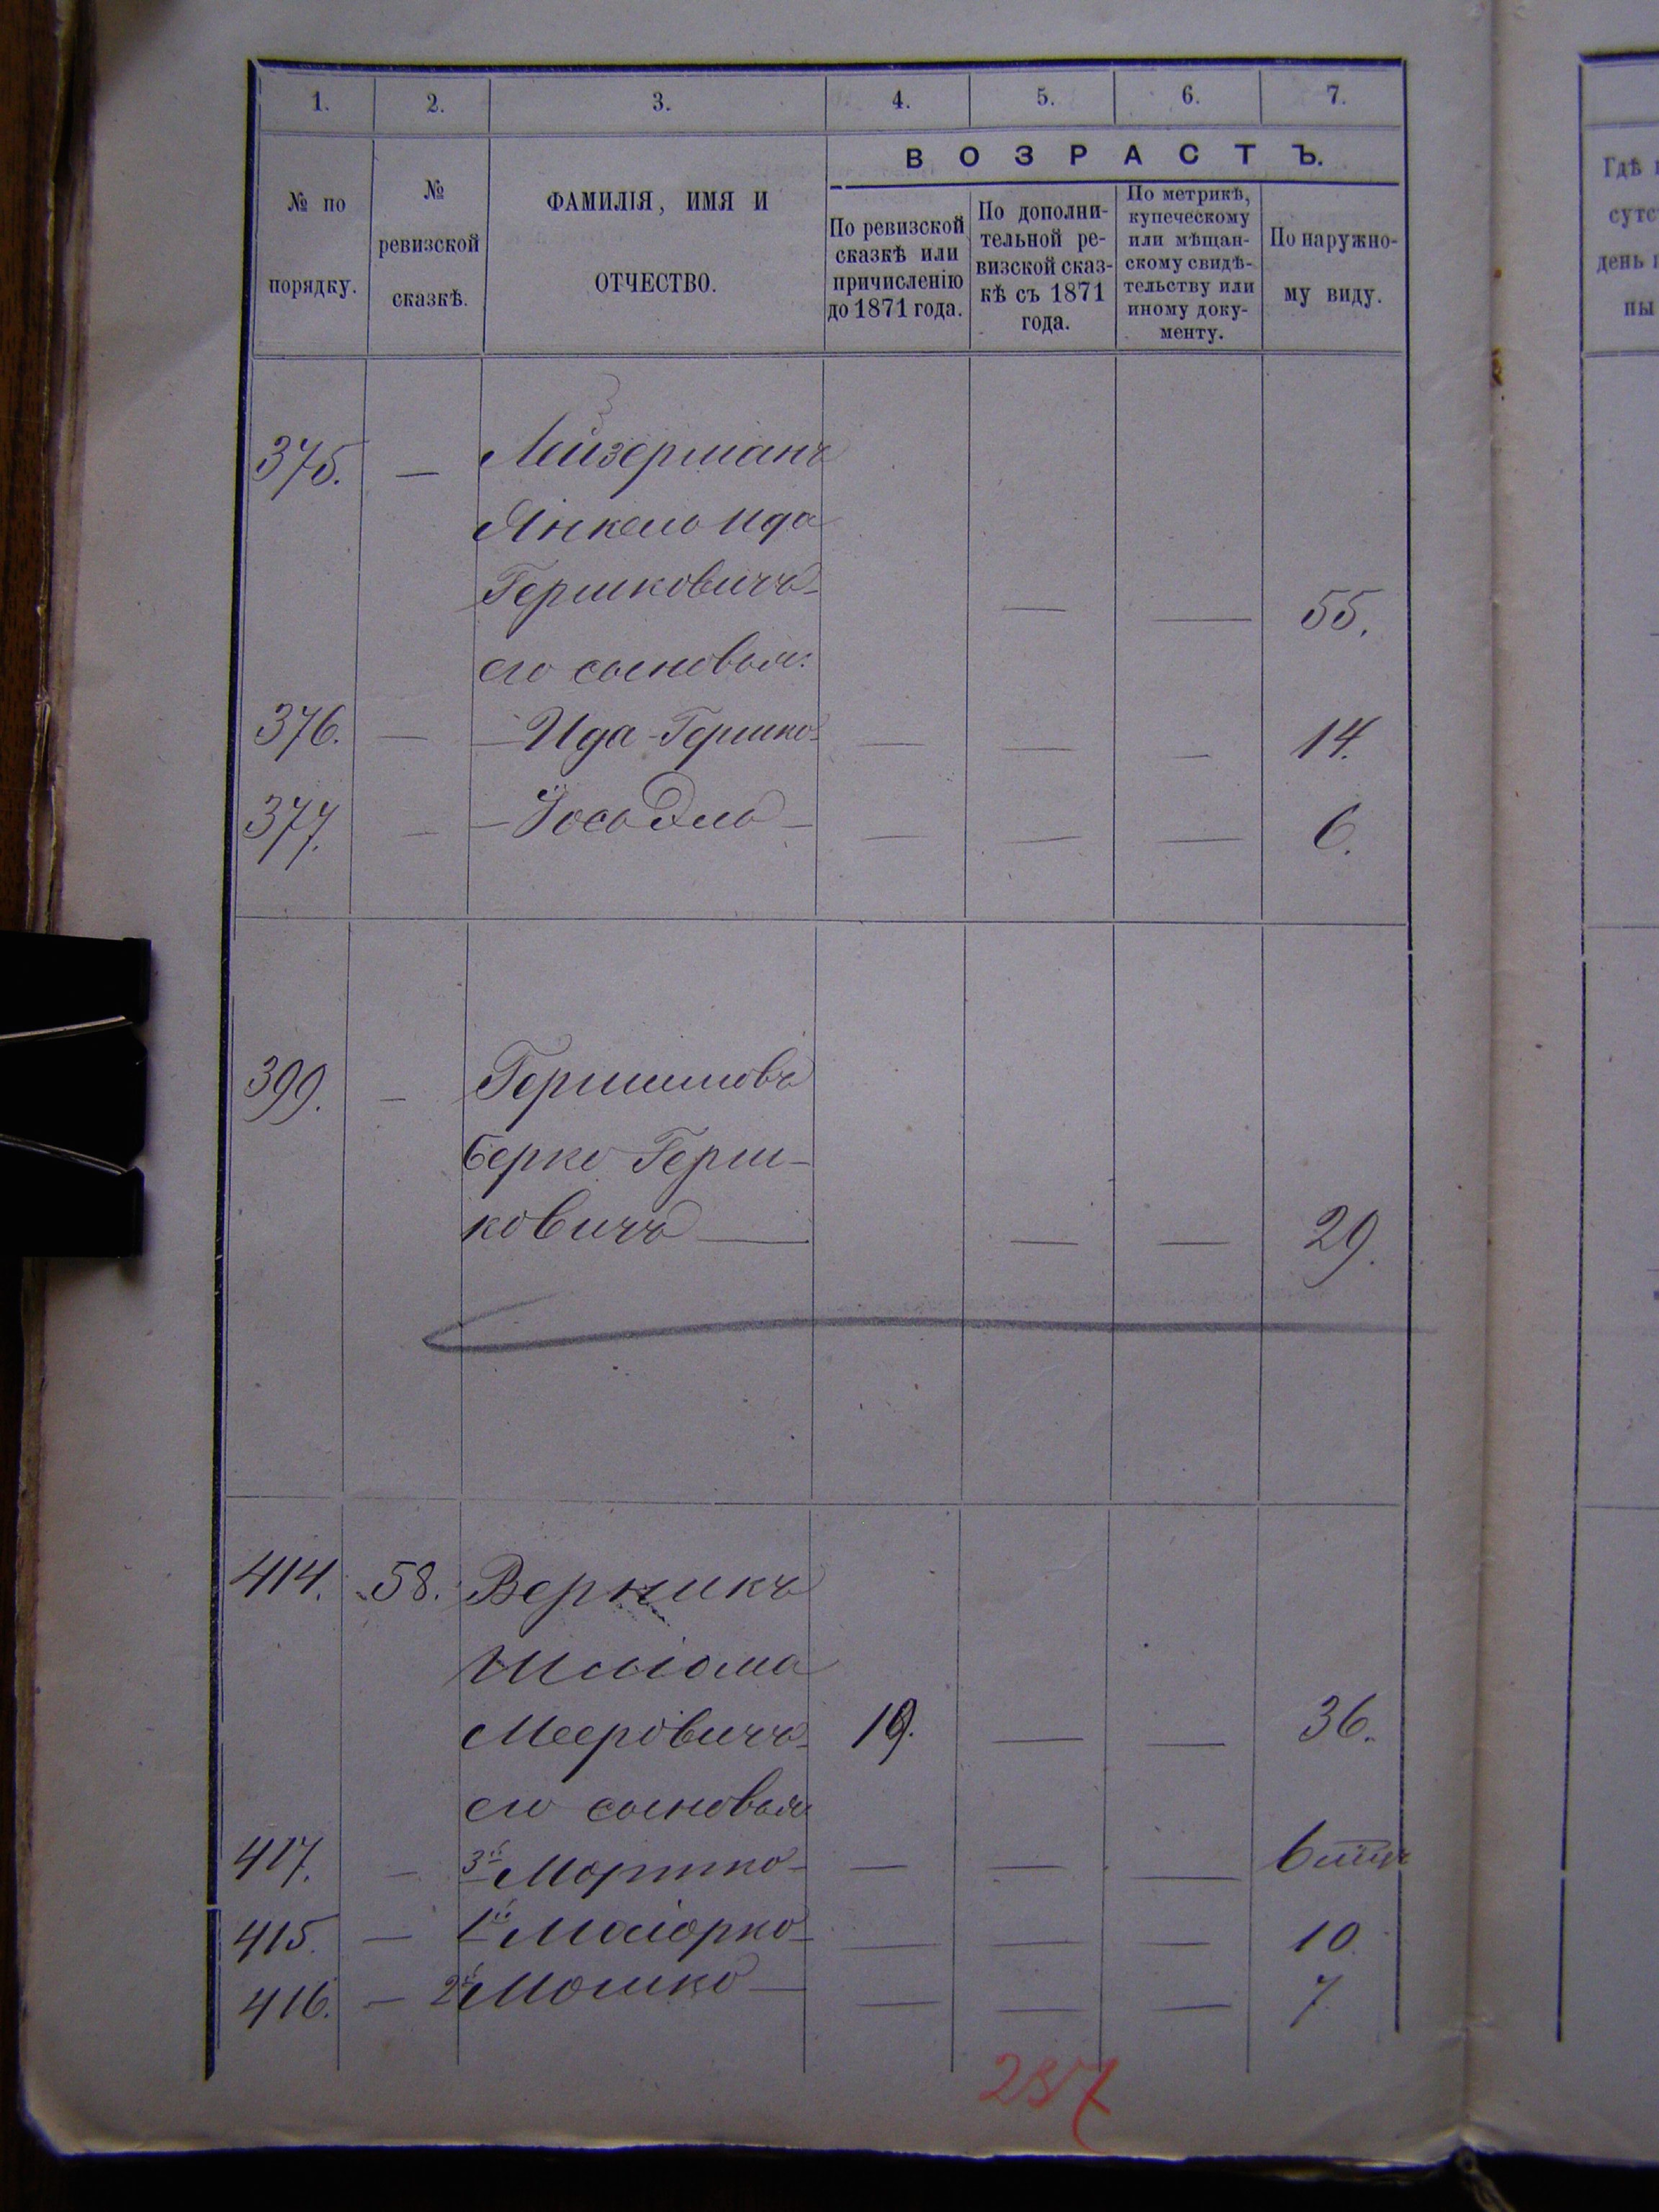 1. 2. 3. 4. 5. 6. 7.
ВОЗРАСТЪ.
№ по порядку.
№ ревизской сказкѣ.
ФАМИЛІЯ, ИМЯ И ОТЧЕСТВО.
По ревизской сказкѣ или причисленію до 1871 года.
По дополни-
тельной ре-
визской сказ-
кѣ съ 1871
года.
По метрикѣ,
купеческому
или мѣщан-
скому свидѣ-
тельству или
иному доку-
менту.
По наружно-
му виду.
Гдѣ
сутс
день
ны
375. — Лейзерманъ
Янкель Ида
Гершковичъ — — 55.
его сыновья:
376. — — Ида-Гершко — — — 14.
377. — — Іось Эль — — — — 6.
399. — Гершиновъ
Берко Герш-
ковичъ — — — 29.
414. 58. Верникъ
Шліома
Мееровичъ 19. — — 36.
его сыновья
417. — 3й Мортко — — — —
415. — 1й Маіорко — — — 10
416. — 2й Мошко — — — — 7
287